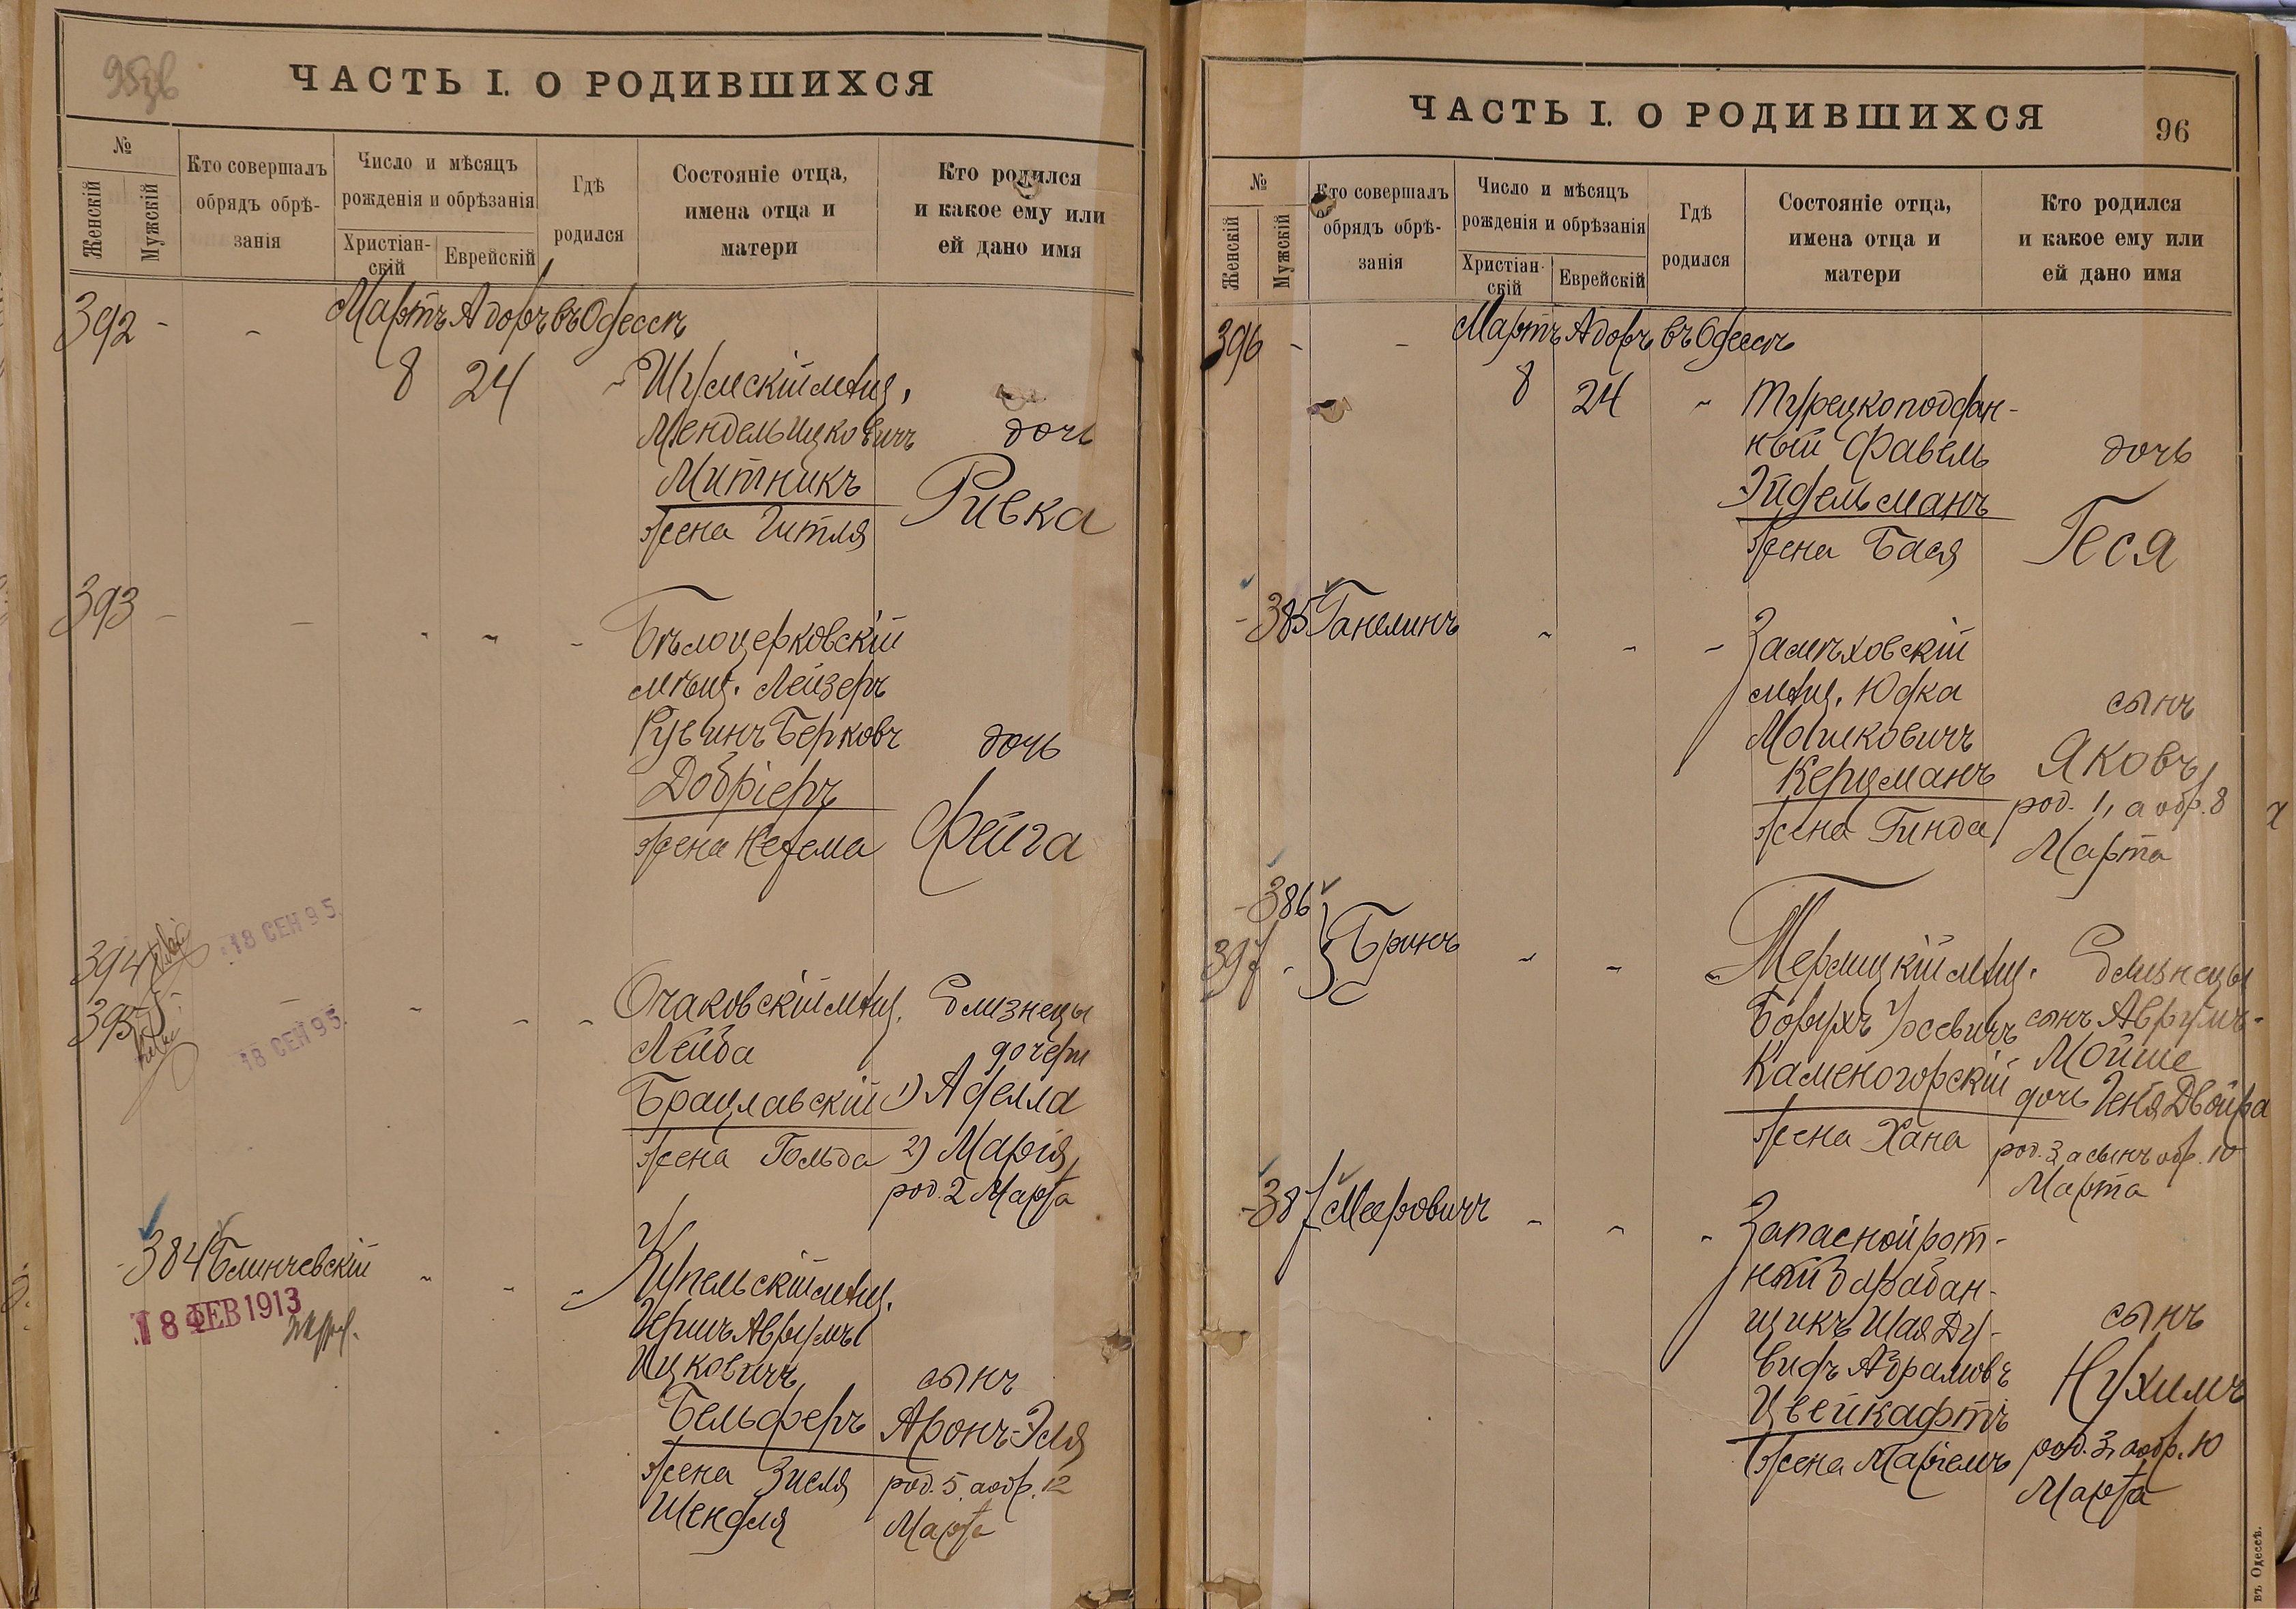 ЧАСТЬ I. О РОДИВШИХСЯ
№
Женскій
Мужскій
Кто совершалъ
обрядъ обрѣ-
занія
Число и мѣсяцъ
рожденія и обрѣзанія
Христіан-
скій
Еврейскій
Гдѣ
родился
Состояніе отца,
имена отца и
матери
Кто родился
и какое ему или
ей дано имя
392 - - Мартъ Адаръ въ Одессѣ
8 24 " Шумскій мѣщ.
Мендель Ицковичъ дочь
Митникъ Ривка
жена Гитля
393 - - " " " Бѣлоцерковскій
мѣщ. Лейзеръ
Рувинъ Берковъ дочь
Добріеръ Фейга
жена Нехема
394 18 СЕН 95.
395 18 СЕН 95.
- " " " Очаковскій мѣщ. близнецы
Лейба дочери
Брацлавскій 1) Аделла
жена Гольда 2) Марія
род. 2 Марта
- 384 Блинчевскій " " " Купельскій мѣщ.
18 ФЕВ 1913
Гершъ Аврумъ
Ицковичъ сынъ
Бельферъ Аронъ-Эля
жена Зисля род. 5, а обр. 12
Шендля Марта
ЧАСТЬ I. О РОДИВШИХСЯ
96
№
Женскій
Мужскій
Кто совершалъ
обрядъ обрѣ-
занія
Число и мѣсяцъ
рожденія и обрѣзанія
Христіан-
скій
Еврейскій
Гдѣ
родился
Состояніе отца,
имена отца и
матери
Кто родился
и какое ему или
ей дано имя
396 - - Мартъ Адаръ въ Одессѣ
8 24 " Турецкоподдан-
ный Фавель дочь
Эйдельманъ Геся
жена Бася
- 385 Ганелинъ " " " Замѣховскій
мѣщ. Юдка сынъ
Мошковичъ Яковъ
Керцманъ род. 1, а обр. 8
жена Гинда Марта
- 386
397 - Бринъ " " " Мерлицкій мѣщ. близнецы
Борухъ Іосевичъ сынъ Аврумъ-
Каменогорскій Мойше
дочь Геня Двойра
жена Хана род. 3, а сынъ обр. 10
Марта
- 387 Мееровичъ " " " Запасной рот-
ный барабан-
щикъ Шая Ду- сынъ
видъ Абрамовъ Нухимъ
Цвейкафтъ род. 3, а обр. 10
жена Маріемъ Марта
въ Одессѣ.